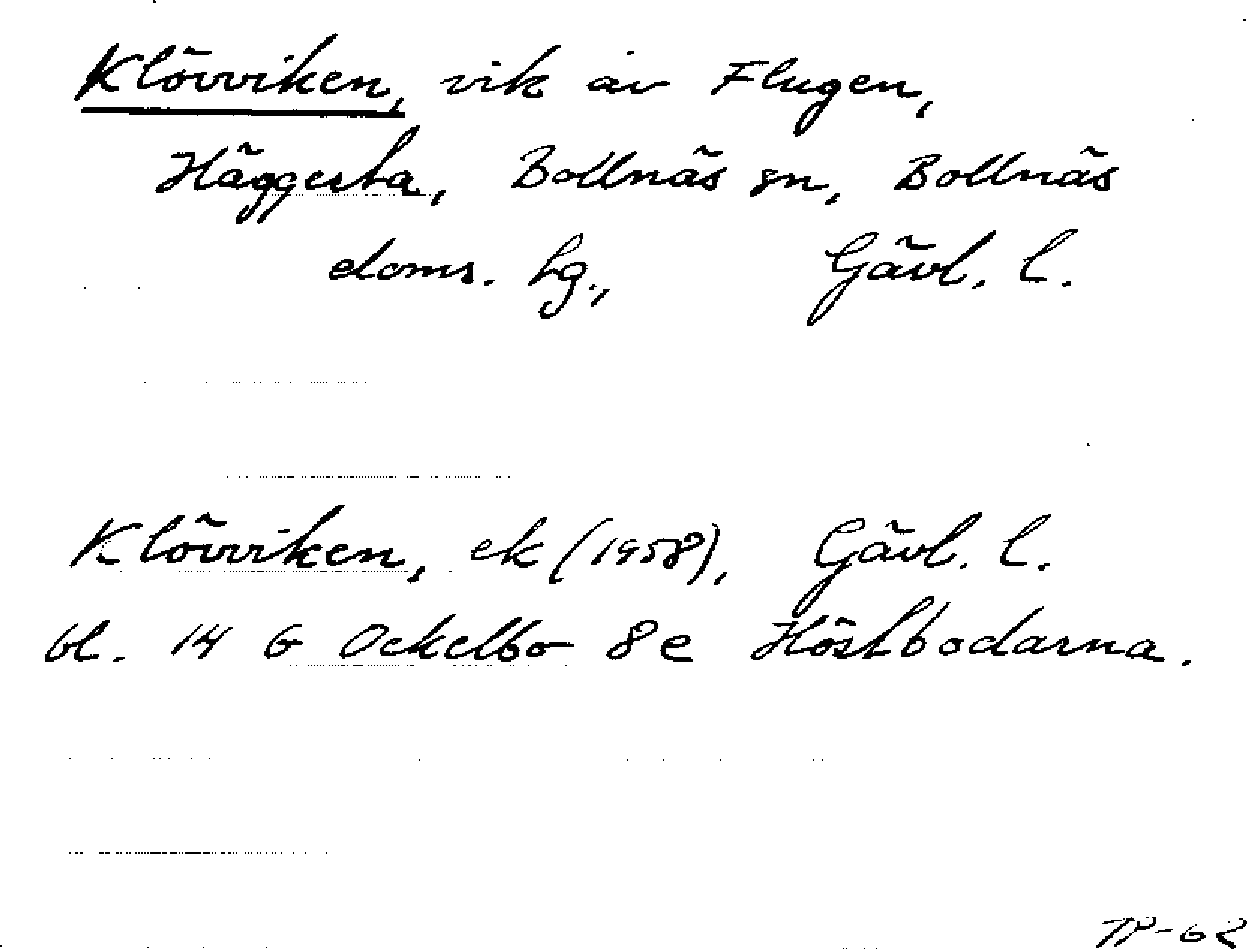 Klövviken, vik av Flugen,
Häggesta, Bollnäs sn, Bollnäs
doms. hg.,  Gävl. l.
Klövviken, ek (1958), Gävl. l.
bl. 14 G Ockelbo 8e Höstbodarna.
TP-62